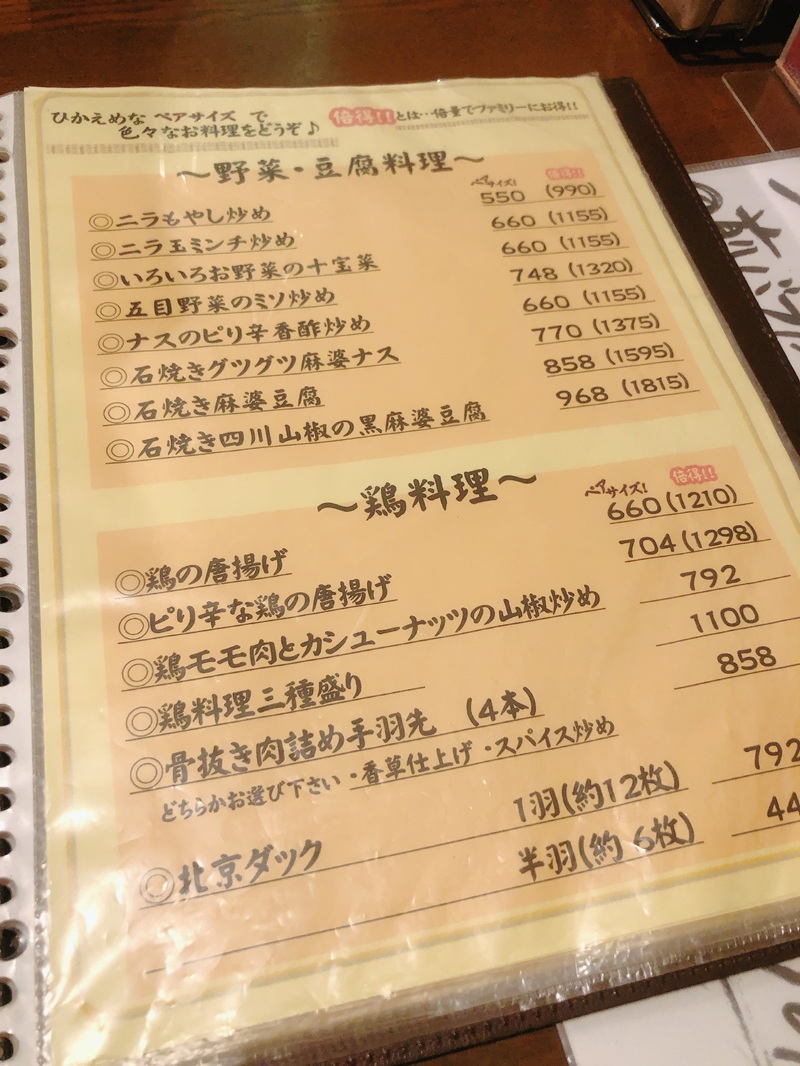 ひかえめな ペアサイズ で
色々なお料理をどうぞ♪
倍得!!とは…倍量でファミリーにお得!!
～野菜・豆腐料理～
ペアサイズ! 倍得!!
◎ニラもやし炒め 550 (990)
◎ニラ玉ミンチ炒め 660 (1155)
◎いろいろお野菜の十宝菜 660 (1155)
◎五目野菜のミソ炒め 748 (1320)
◎ナスのピリ辛香酢炒め 660 (1155)
◎石焼きグツグツ麻婆ナス 770 (1375)
◎石焼き麻婆豆腐 858 (1595)
◎石焼き四川山椒の黒麻婆豆腐 968 (1815)
～鶏料理～
ペアサイズ! 倍得!!
◎鶏の唐揚げ 660 (1210)
◎ピリ辛な鶏の唐揚げ 704 (1298)
◎鶏モモ肉とカシューナッツの山椒炒め 792
◎鶏料理三種盛り 1100
◎骨抜き肉詰め手羽先 (4本) 858
どちらかお選び下さい・香草仕上げ・スパイス炒め
◎北京ダック 1羽(約12枚) 792
半羽(約 6枚) 44